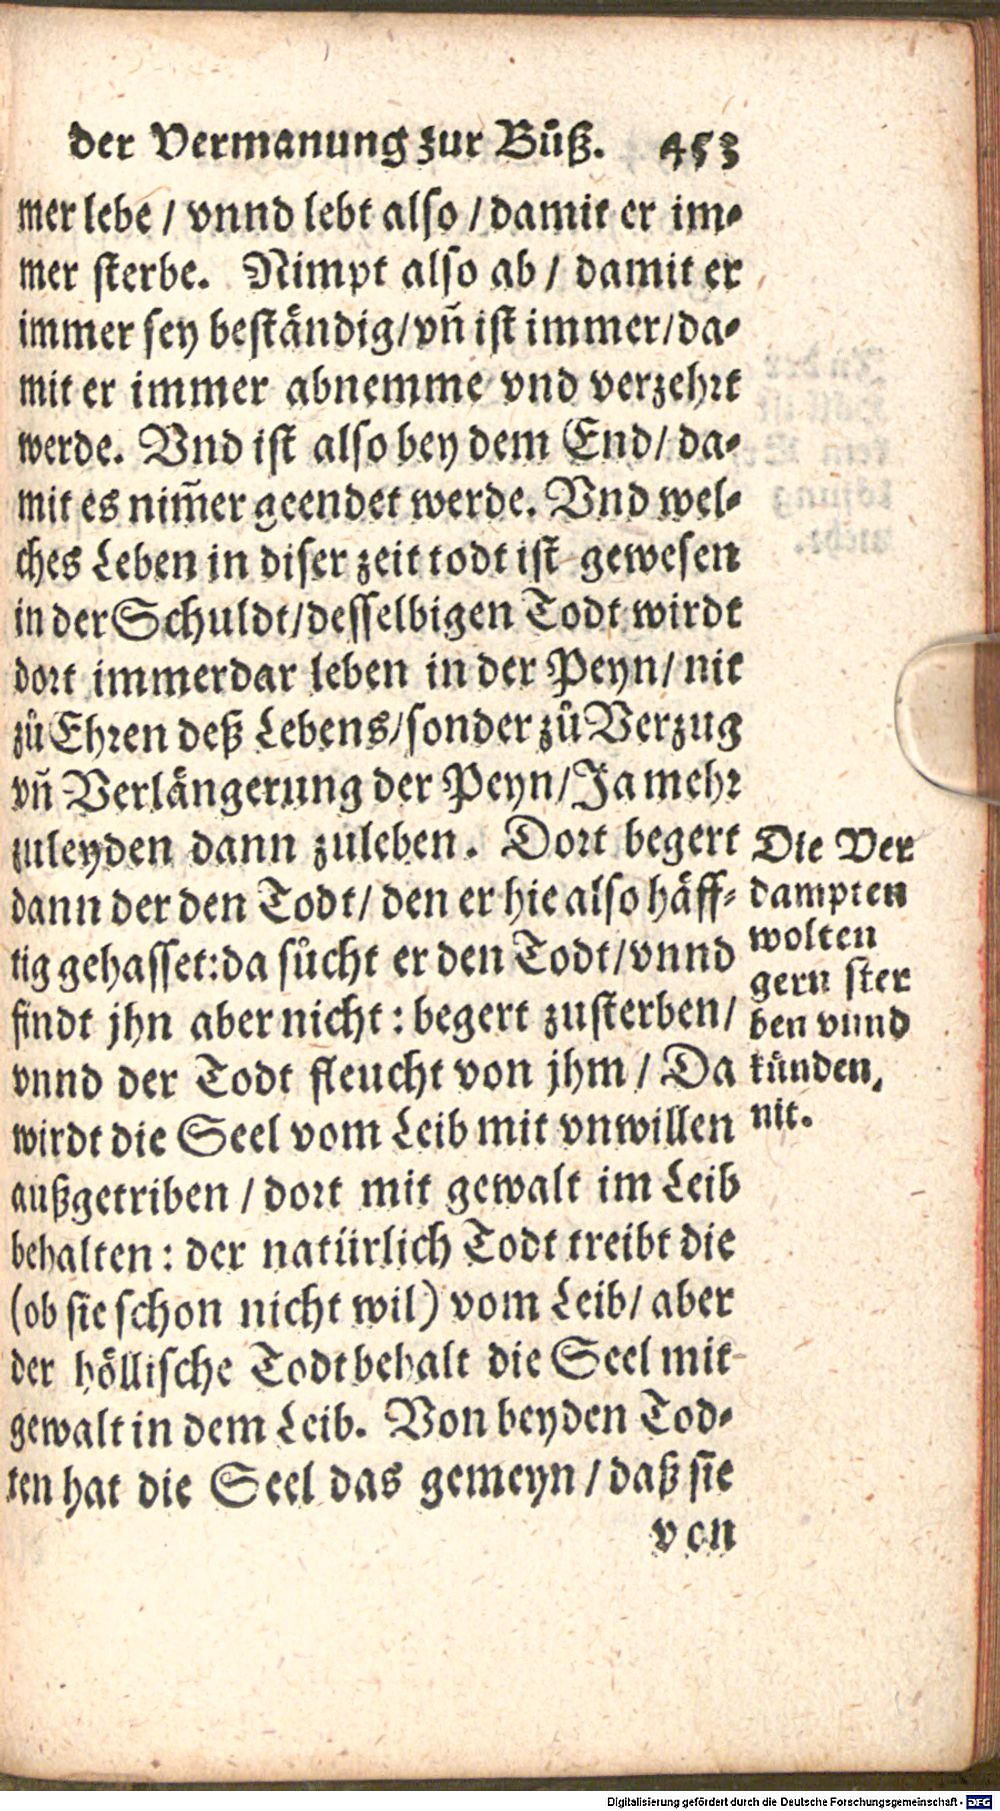 der Vermanung zur Bůß. 453
mer lebe / vnnd lebt also / damit er im-
mer sterbe. Nimpt also ab / damit er
immer sey beständig/ vñ ist immer/ da-
mit er immer abnemme vnd verzehrt
werde. Vnd ist also bey dem End/ da-
mit es nim̃er geendet werde. Vnd wel-
ches Leben in diser zeit todt ist gewesen
in der Schuldt/ desselbigen Todt wirdt
dort immerdar leben in der Peyn/ nit
zů Ehren deß Lebens/ sonder zů Verzug
vñ Verlängerung der Peyn/ Ja mehr
zuleyden dann zuleben. Dort begert
dann der den Todt/ den er hie also häff-
tig gehasset: da sůcht er den Todt/ vnnd
findt jhn aber nicht: begert zusterben/
vnnd der Todt fleucht von jhm / Da
wirdt die Seel vom Leib mit vnwillen
außgetriben / dort mit gewalt im Leib
behalten: der natürlich Todt treibt die
(ob sie schon nicht wil) vom Leib/ aber
der höllische Todt behalt die Seel mit
gewalt in dem Leib. Von beyden Tod-
ten hat die Seel das gemeyn / daß sie
von
Die Ver
dampten
wolten
gern ster
ben vnnd
künden,
nit.
Digitalisierung gefördert durch die Deutsche Forschungsgemeinschaft - DFG